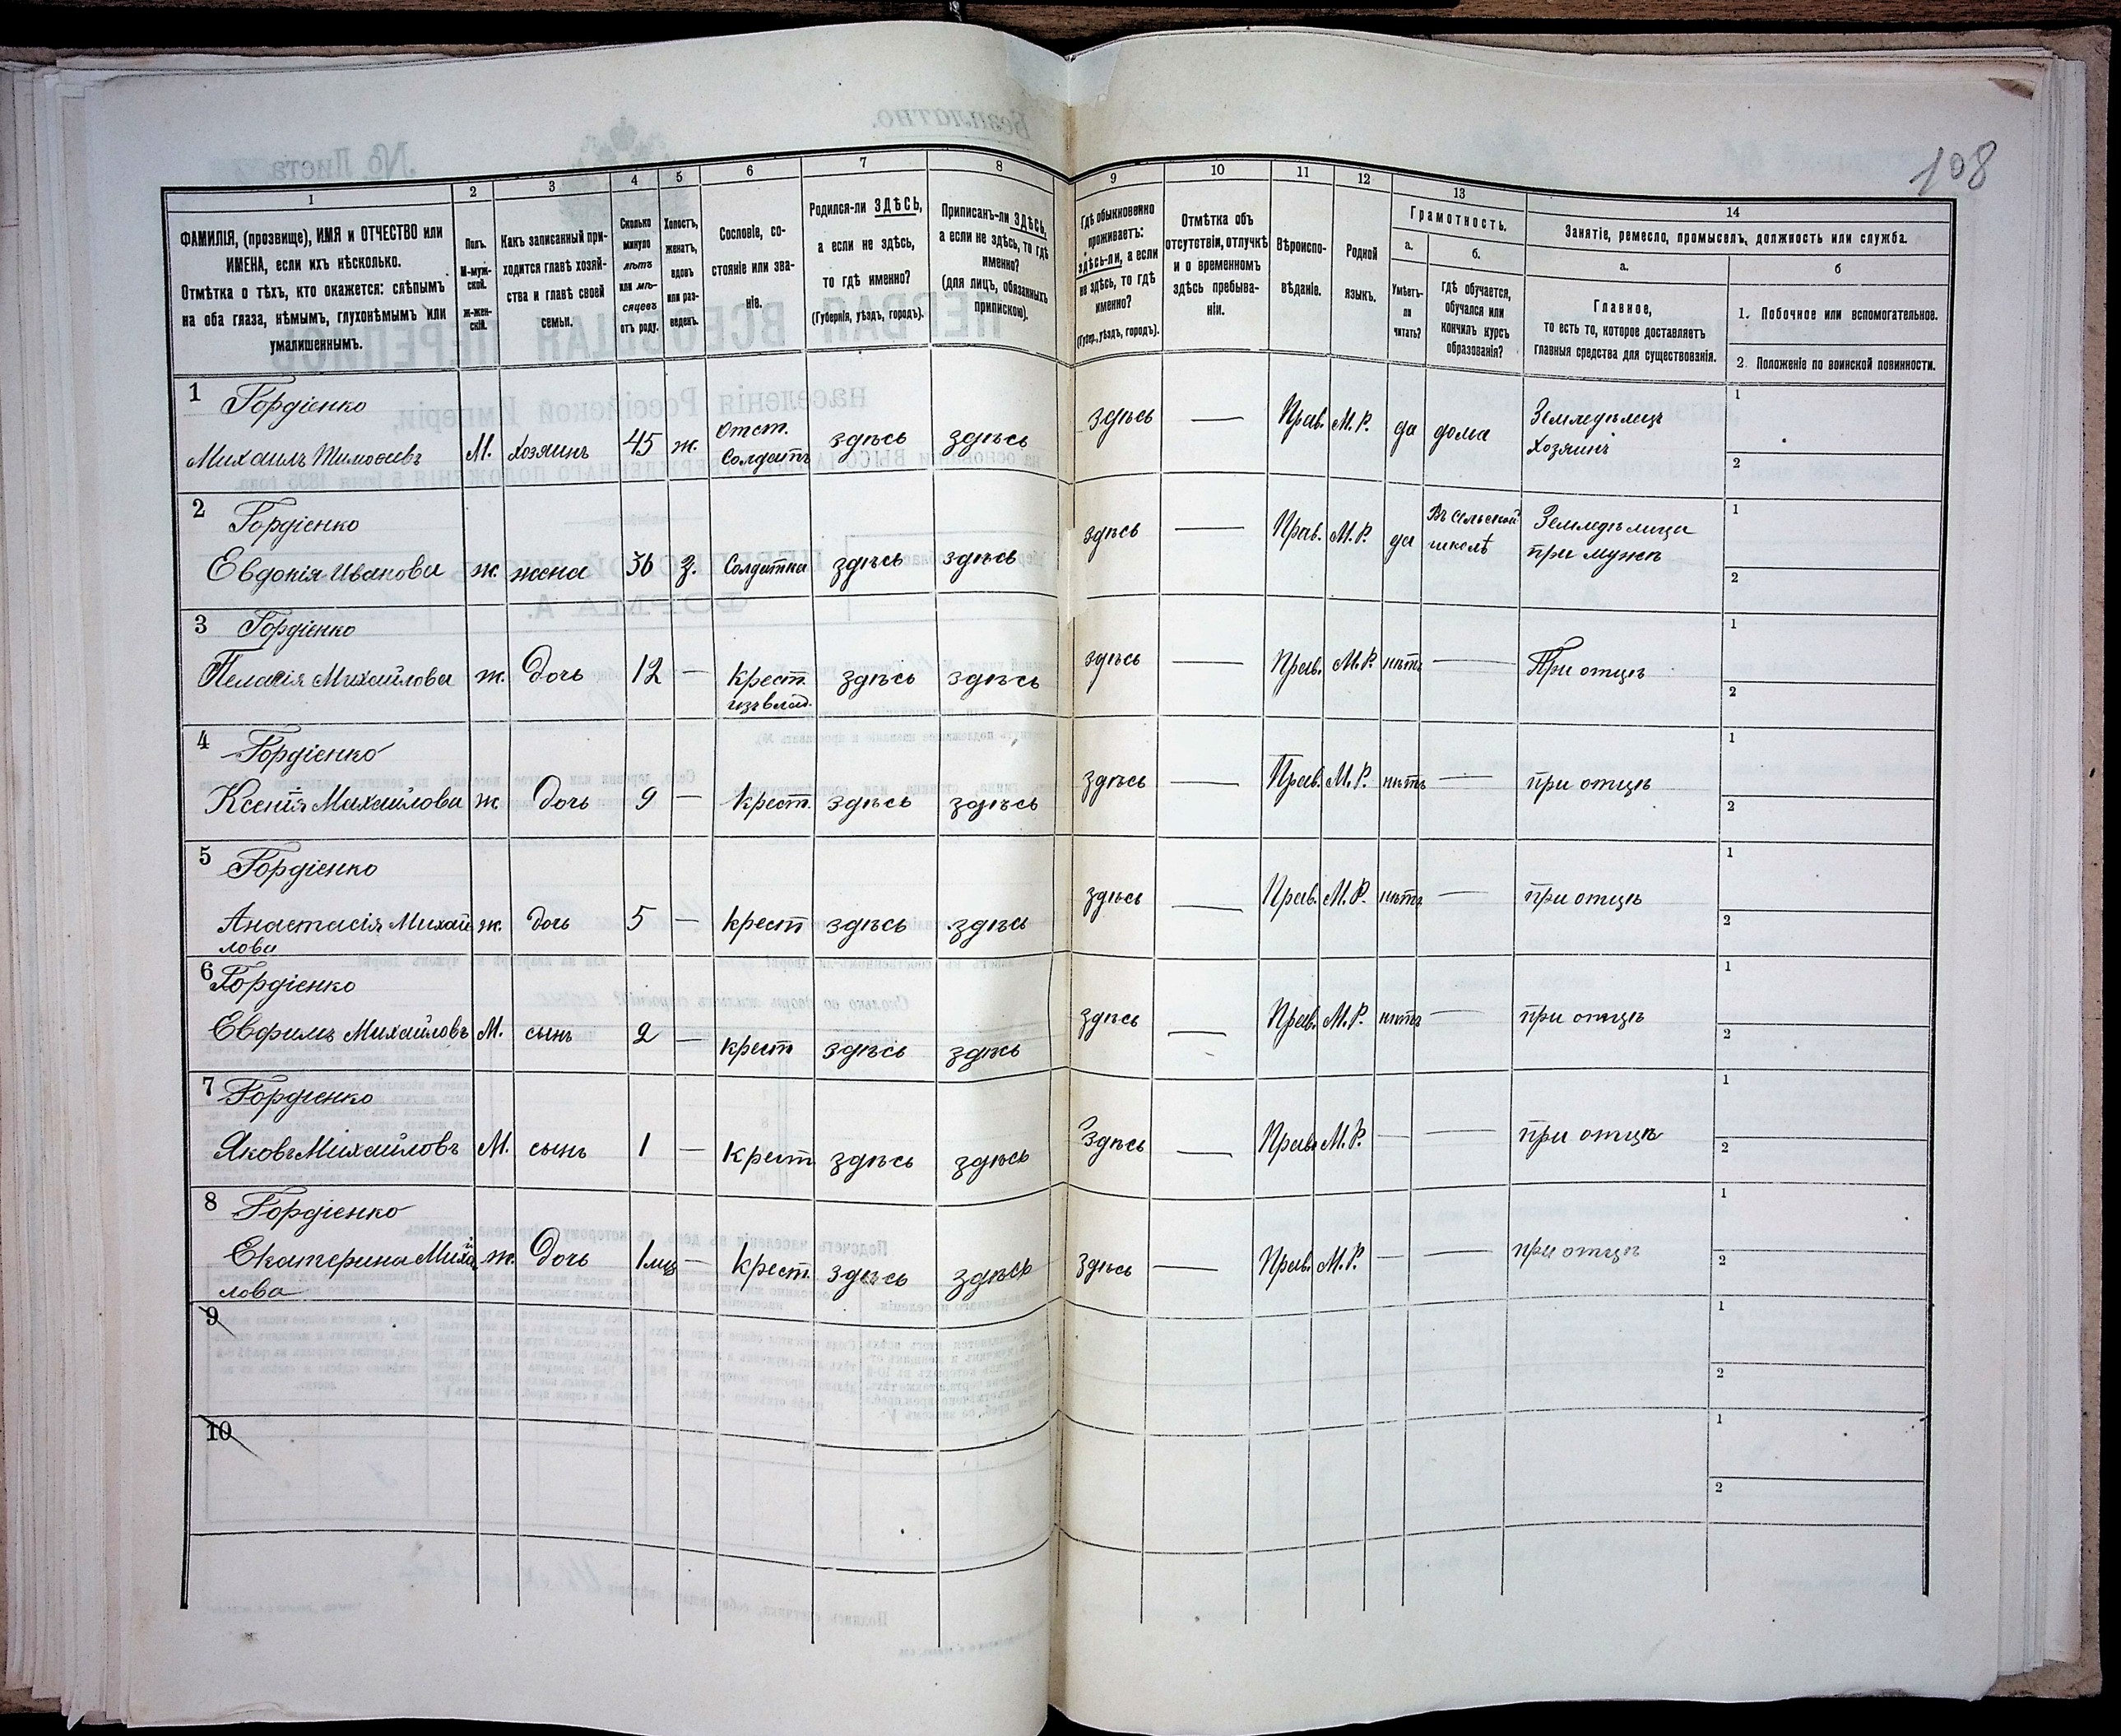 108
1
ФАМИЛІЯ, (прозвище), ИМЯ и ОТЧЕСТВО или
ИМЕНА, если ихъ нѣсколько.
Отмѣтка о тѣхъ, кто окажется: слѣпымъ
на оба глаза, нѣмымъ, глухонѣмымъ или
умалишеннымъ.
2
Полъ.
М-муж-
ской.
ж-жен-
скій.
3
Какъ записанный при-
ходится главѣ хозяй-
ства и главѣ своей
семьи.
4
Сколько
минуло
лѣтъ
или мѣ-
сяцевъ
отъ роду.
5
Холостъ,
женатъ,
вдовъ
или раз-
веденъ.
6
Сословіе, со-
стояніе или зва-
ніе.
7
Родился-ли ЗДѢСЬ,
а если не здѣсь,
то гдѣ именно?
(Губернія, уѣздъ, городъ).
8
Приписанъ-ли ЗДѢСЬ,
а если не здѣсь, то гдѣ
именно?
(для лицъ, обязанныхъ
припискою).
9
Гдѣ обыкновенно
проживаетъ:
здѣсь-ли, а если
не здѣсь, то гдѣ
именно?
(Губер., уѣздъ, городъ).
10
Отмѣтка объ
отсутствіи, отлучкѣ
и о временномъ
здѣсь пребыва-
ніи.
11
Вѣроиспо-
вѣданіе.
12
Родной
языкъ.
13
Грамотность.
а.
Умѣетъ-
ли
читать?
б.
гдѣ обучается,
обучался или
кончилъ курсъ
образованія?
14
Занятіе, ремесло, промыселъ, должность или служба.
а.
Главное,
то есть то, которое доставляетъ
главныя средства для существованія.
б
1. Побочное или вспомогательное.
2. Положеніе по воинской повинности.
1 Гордіенко
Михаилъ Тимоѳеевъ М. хозяинъ 45 ж. Отст. солдатъ здѣсь здѣсь здѣсь — Прав. М. Р. да дома Земледѣлецъ
Хозяинъ
1
2
2 Гордіенко
Евдокія Иванова ж. жена 36 з. Солдатка здѣсь здѣсь здѣсь — Прав. М. Р. да Въ сельской школѣ Земледѣлица
при мужѣ
1
2
3 Гордіенко
Пелагія Михайлова ж. Дочь 12 — крест. изъ влад. здѣсь здѣсь здѣсь — Прав. М. Р. нѣтъ — При отцѣ
1
2
4 Гордіенко
Ксенія Михайлова ж. Дочь 9 — крест. здѣсь здѣсь здѣсь — Прав. М. Р. нѣтъ — при отцѣ
1
2
5 Гордіенко
Анастасія Михай ж. дочь 5 — крест здѣсь здѣсь здѣсь — Прав. М. Р. нѣтъ — при отцѣ
лова
1
2
6 Гордіенко
Евфимъ Михайловъ М. сынъ 2 — крест здѣсь здѣсь здѣсь — Прав. М. Р. нѣтъ — при отцѣ
1
2
7 Гордіенко
Яковъ Михайловъ М. сынъ 1 — крест. здѣсь здѣсь Здѣсь — Прав. М. Р. — — при отцѣ
1
2
8 Гордіенко
Екатерина Михай ж. Дочь 1 мц — крест. здѣсь здѣсь здѣсь — Прав. М. Р. — — при отцѣ
лова
1
2
9
1
2
10
1
2